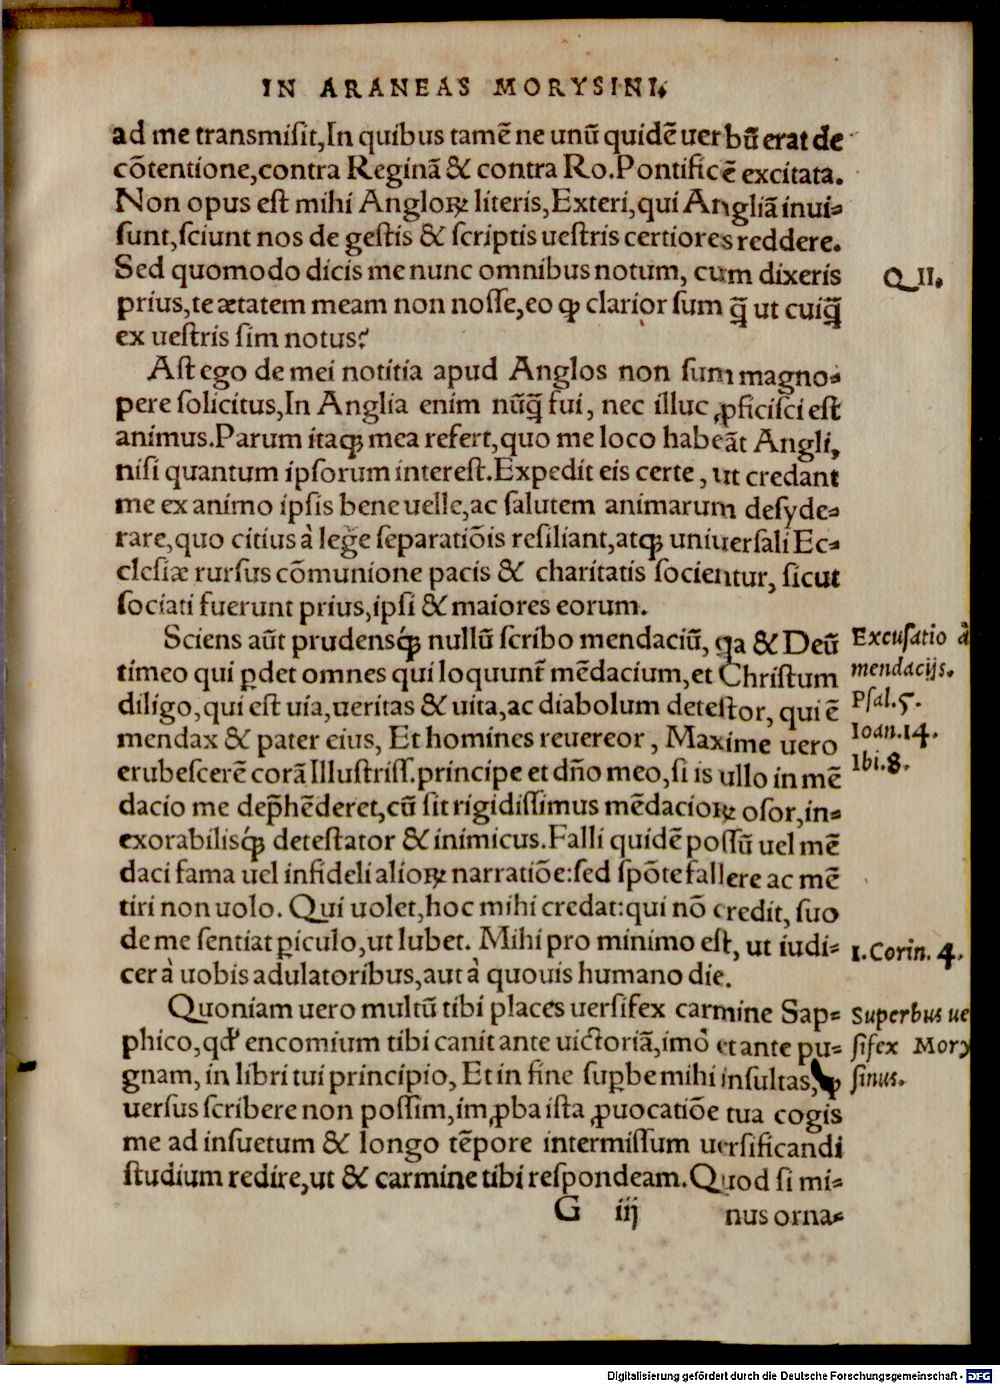 IN ARANEAS MORYSINI.
ad me transmiſit,In quibus tamē ne unū quidē uerbū erat de
cōtentione,contra Reginā & contra Ro.Pontificē excitata.
Non opus eſt mihi Angloꝝ literis,Exteri,qui Angliā inui⸗
ſunt,ſciunt nos de geſtis & ſcriptis ueſtris certiores reddere.
Sed quomodo dicis me nunc omnibus notum, cum dixeris
Q II.
prius,te ætatem meam non noſſe,eo ꝙ clarior ſum q̃ ut cuiq̃
ex ueſtris ſim notus?
Aſt ego de mei notitia apud Anglos non ſum magno⸗
pere ſolicitus,In Anglia enim nūq̃ fui, nec illuc ꝓficiſci eſt
animus.Parum itaq; mea refert,quo me loco habeāt Angli,
niſi quantum ipſorum intereſt.Expedit eis certe, ut credant
me ex animo ipſis bene uelle,ac ſalutem animarum deſyde⸗
rare,quo citius à lege ſeparatiōis reſiliant,atq; uniuerſali Ec⸗
cleſiæ rurſus cōmunione pacis & charitatis ſocientur, ſicut
ſociati fuerunt prius,ipſi & maiores eorum.
Sciens aūt prudensq́; nullū ſcribo mendaciū, qa & Deū
Excuſatio à
timeo qui ꝑdet omnes qui loquunt̃ mēdacium,et Chriſtum
mendacijs.
diligo,qui eſt uia,ueritas & uita,ac diabolum deteſtor, qui ē
Pſal.5.
mendax & pater eius, Et homines reuereor, Maxime uero
Ioan.14.
erubeſcerē corā Illuſtriſſ.principe et dño meo,ſi is ullo in mē
Ibi.8.
dacio me dep̃hēderet,cū ſit rigidiſſimus mēdacioꝝ oſor,in⸗
exorabilisq́; deteſtator & inimicus.Falli quidē poſſū uel mē
daci fama uel infideli alioꝝ narratiōe:ſed ſpōte fallere ac mē
tiri non uolo. Qui uolet,hoc mihi credat:qui nō credit, ſuo
de me ſentiat ꝑiculo,ut lubet. Mihi pro minimo eſt, ut iudi⸗
1.Corin. 4.
cer à uobis adulatoribus,aut à quouis humano die.
Quoniam uero multū tibi places uerſifex carmine Sap⸗
Superbus ue
phico,qđ encomium tibi canit ante uictoriā,imò et ante pu⸗
ſifex Mory
gnam, in libri tui principio, Et in fine ſuꝑbe mihi inſultas, ꝙ
ſinus.
uerſus ſcribere non poſſim,imꝓba iſta ꝓuocatiōe tua cogis
me ad inſuetum & longo tēpore intermiſſum uerſificandi
ſtudium redire,ut & carmine tibi reſpondeam.Quod ſi mi⸗
G iij nus orna⸗
Digitalisierung gefördert durch die Deutsche Forschungsgemeinschaft - DFG